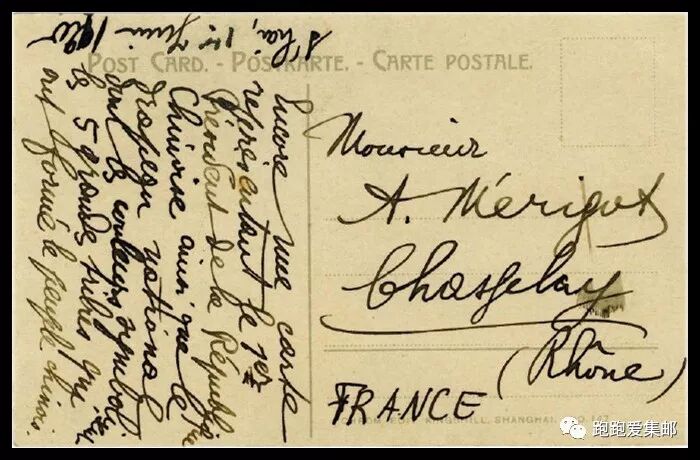 POST CARD. - POSTKARTE. - CARTE POSTALE.
S'hai, 1er Juin
Encore une carte
représentant le 1er
Président de la Républ
Chinoise ainsi que le
Drapeau national
dont les couleurs symboli
les 5 grandes tribus qui
ont formé le peuple chinois.
Monsieur
A. Mérigot
Chasselay
(Rhône)
FRANCE
KINGSHILL, SHANGHAI.
跑跑爱集邮